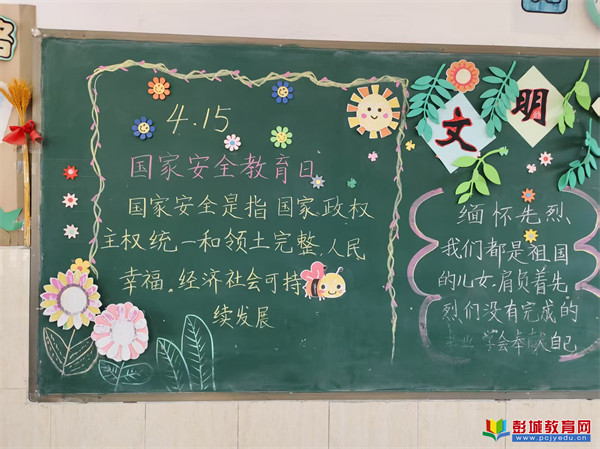 4.15
国家安全教育日
国家安全是指国家政权
主权统一和领土完整,人民
幸福.经济社会可持
续发展
文明
缅怀先烈、
我们都是祖国
的儿女.肩负着先
烈们没有完成的
学会奉献自己
彭城教育网
www.pcjyedu.cn